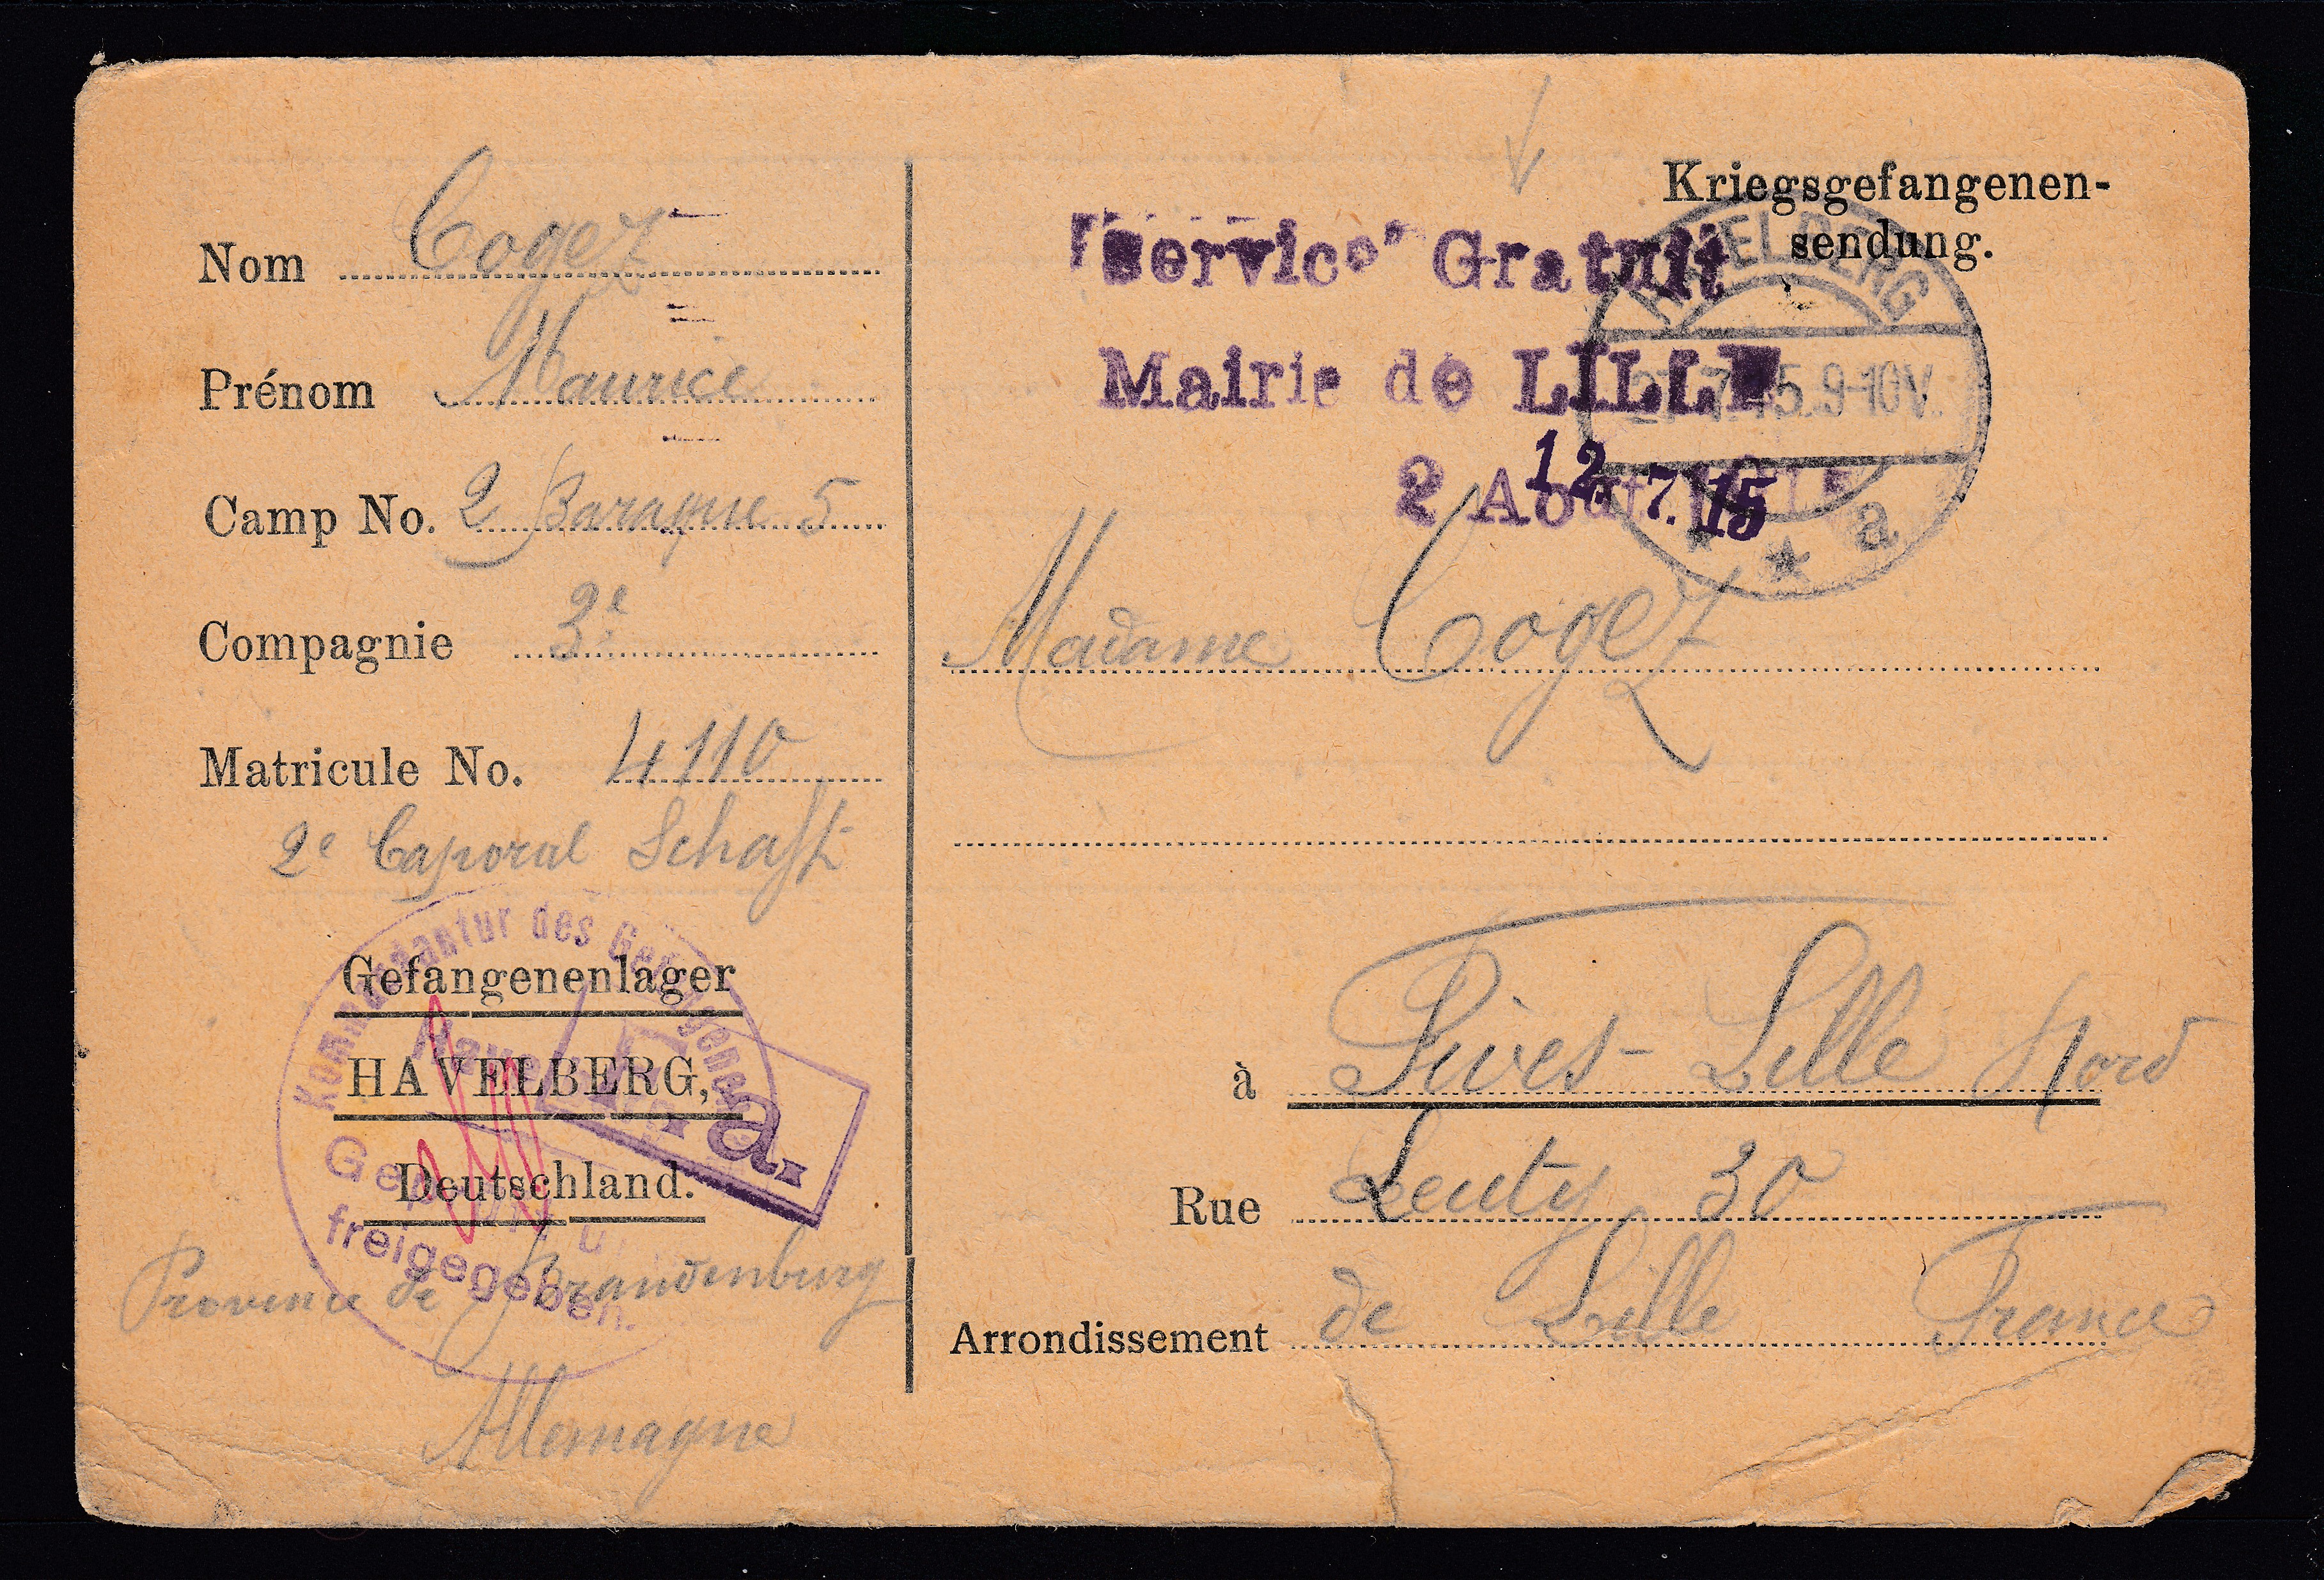 Nom Cogez
Prénom Maurice
Camp No. 2 Baraque 5
Compagnie 3e
Matricule No. 4110
2e Caporal Schaft
Gefangenenlager
HAVELBERG,
Deutschland.
Province de Brandenburg
Allemagne
Kommandantur des Gefangenen
Havelberg
Geprüft u.
freigegeben.
F. a.
Kriegsgefangenen-
sendung.
"Service" Gratuit
Mairie de LILLE
2 Août 1915
12. 7. 15
HAVELBERG
7.15.9-10V.
* * a
Madame Cogez
à Fives-Lille Nord
Rue Leuty 30
Arrondissement de Lille France